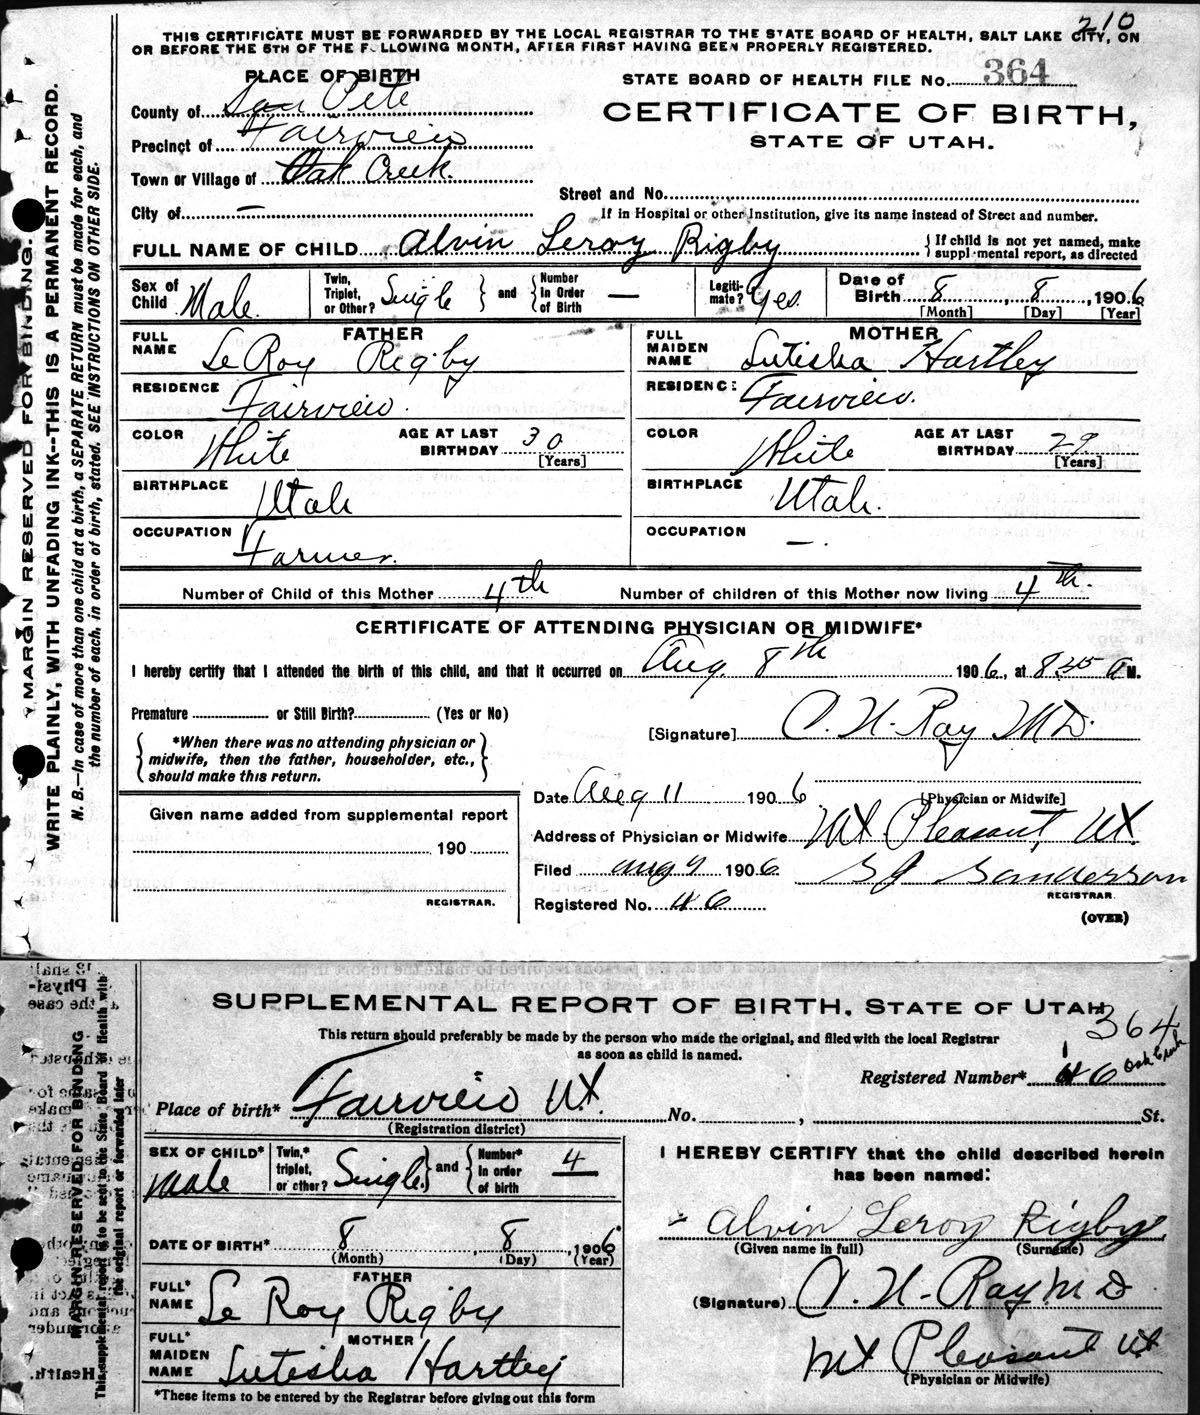 210
THIS CERTIFICATE MUST BE FORWARDED BY THE LOCAL REGISTRAR TO THE STATE BOARD OF HEALTH, SALT LAKE CITY, ON
OR BEFORE THE 5TH OF THE F LLOWING MONTH, AFTER FIRST HAVING BEEN PROPERLY REGISTERED.
PLACE OF BIRTH
STATE BOARD OF HEALTH FILE No. 364
County of San Pete
CERTIFICATE OF BIRTH,
Precinct of Fairview
STATE OF UTAH.
Town or Village of Oak Creek.
Street and No.
City of —
If in Hospital or other Institution, give its name instead of Street and number.
FULL NAME OF CHILD Alvin Leroy Rigby { If child is not yet named, make suppl·mental report, as directed
Sex of Child Male. Twin, Triplet, or Other? Single } and { Number In Order of Birth — Legiti-mate? Yes. Date of Birth 8, 8, 1906
[Month] [Day] [Year]
FATHER
FULL NAME Le Roy Rigby
MOTHER
FULL MAIDEN NAME Lutisha Hartley
RESIDENCE Fairview.
RESIDENC: Fairview.
COLOR White AGE AT LAST BIRTHDAY 30 [Years]
COLOR White AGE AT LAST BIRTHDAY 29 [Years]
BIRTHPLACE Utah
BIRTHPLACE Utah.
OCCUPATION Farmer.
OCCUPATION —.
Number of Child of this Mother 4th Number of children of this Mother now living 4th.
CERTIFICATE OF ATTENDING PHYSICIAN OR MIDWIFE*
I hereby certify that I attended the birth of this child, and that it occurred on Aug. 8th 1906, at 8.45 a M.
Premature or Still Birth? (Yes or No)
[Signature] A. N. Ray M D.
{ *When there was no attending physician or midwife, then the father, householder, etc., should make this return. }
Date Aug 11 1906 [Physician or Midwife]
Given name added from supplemental report
190
REGISTRAR.
Address of Physician or Midwife Mt. Pleasant, Ut.
Filed Aug 9 1906 Sanderson
REGISTRAR.
Registered No. 46
(OVER)
MARGIN RESERVED FOR BINDING.
WRITE PLAINLY, WITH UNFADING INK--THIS IS A PERMANENT RECORD.
N. B.—In case of more than one child at a birth, a SEPARATE RETURN must be made for each, and
the number of each, in order of birth, stated. SEE INSTRUCTIONS ON OTHER SIDE.
SUPPLEMENTAL REPORT OF BIRTH, STATE OF UTAH
This return should preferably be made by the person who made the original, and filed with the local Registrar
as soon as child is named.
364
Registered Number* 46 Oak Creek
Place of birth* Fairview Ut. No. , St.
(Registration district)
SEX OF CHILD* Male Twin,* triplet, or other? Single } and { Number* In order of birth 4
I HEREBY CERTIFY that the child described herein
has been named:
Alvin Leroy Rigby
(Given name in full) (Surname)
DATE OF BIRTH* 8, 8, 1906
(Month) (Day) (Year)
FATHER
FULL* NAME Le Roy Rigby
(Signature) A. N. Ray M D
MOTHER
FULL* MAIDEN NAME Lutisha Hartley
Mt Pleasant Ut
(Physician or Midwife)
*These items to be entered by the Registrar before giving out this form
MARGIN RESERVED FOR BINDING
This supplemental report is to be sent to the State Board of Health with
the original report or forwarded later